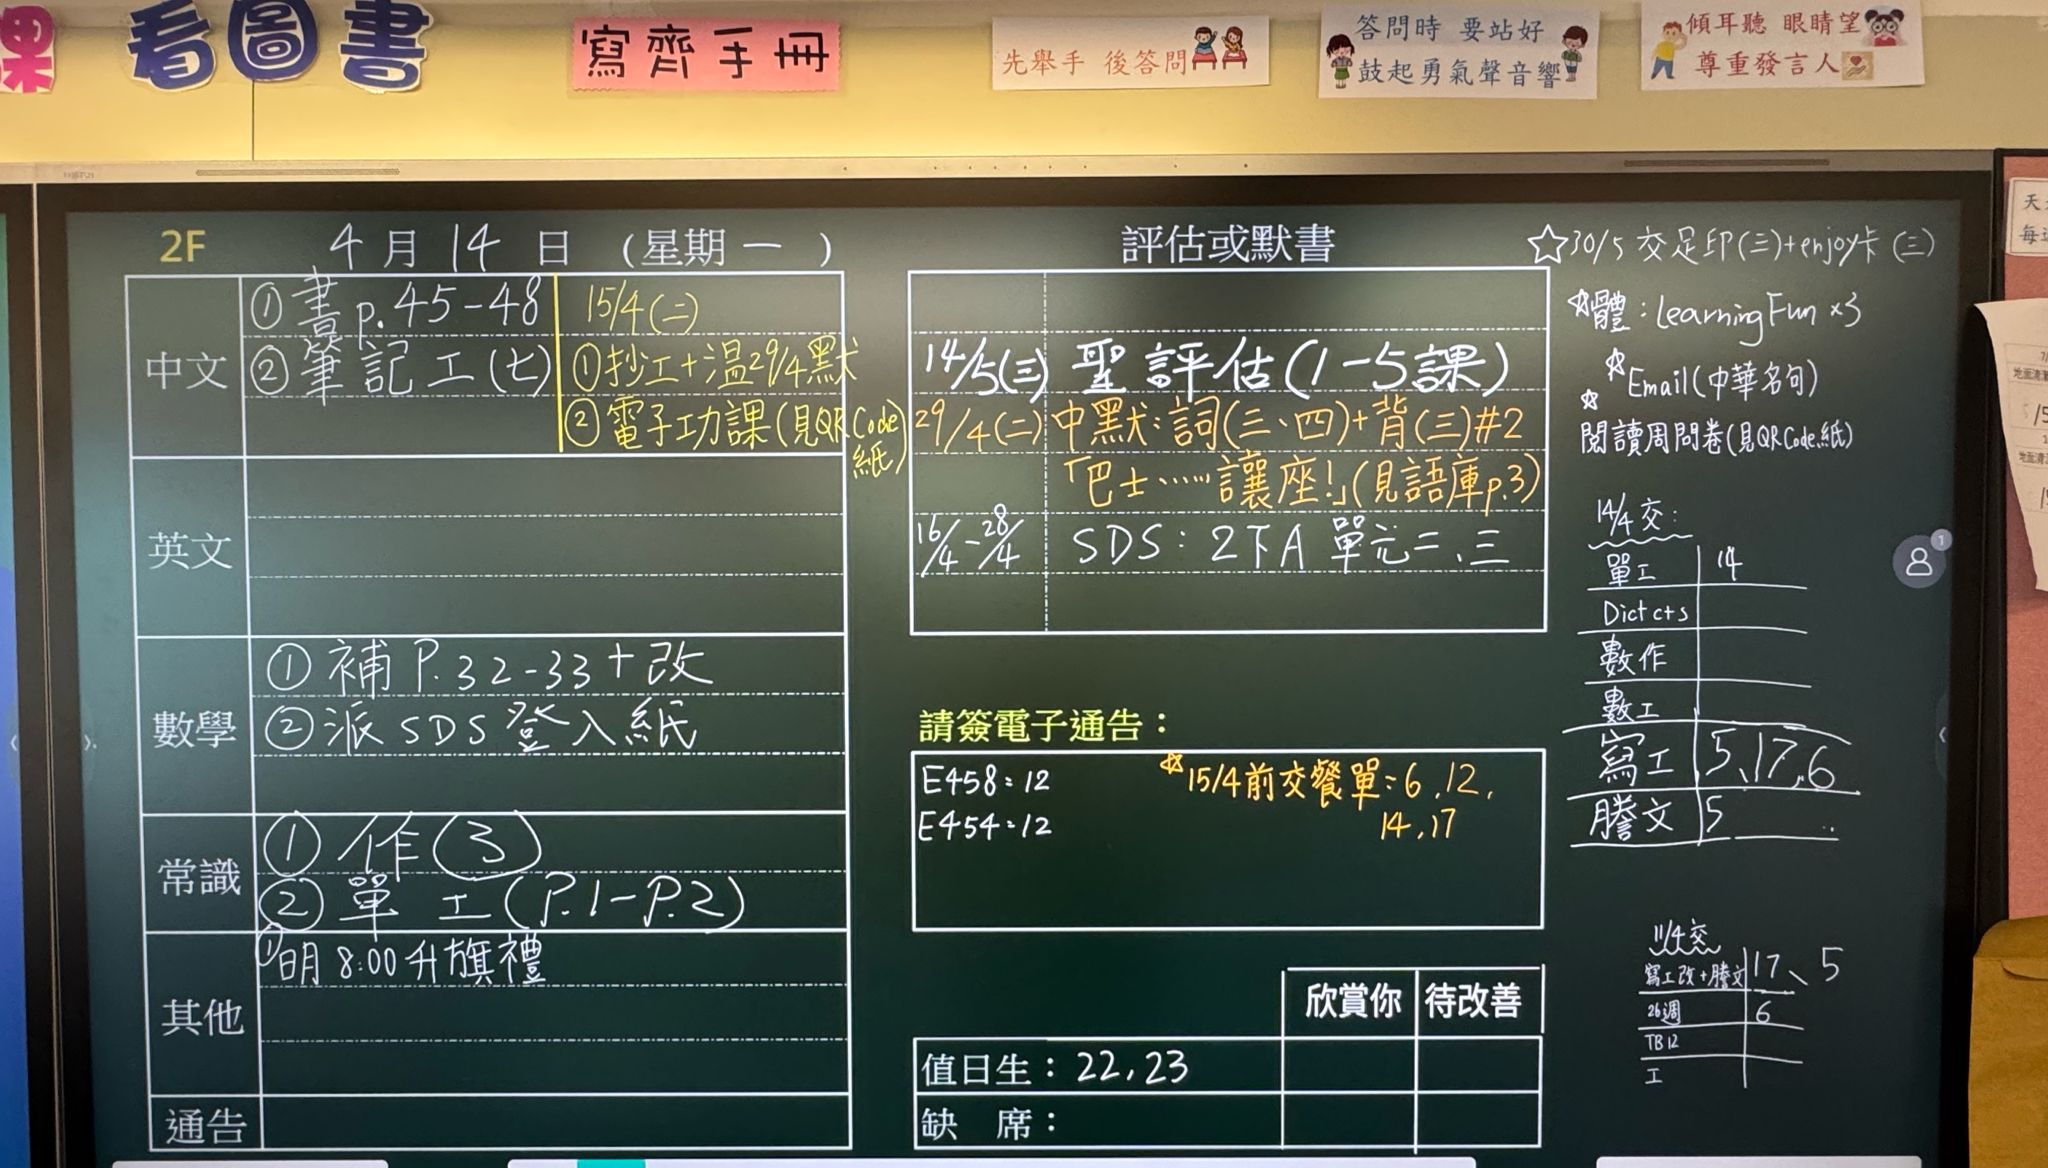 課 看圖書
寫齊手冊
先舉手 後答問
答問時 要站好
鼓起勇氣聲音響
傾耳聽 眼睛望
尊重發言人
2F 4月14日 (星期一)
中文
①書p.45-48
②筆記工(七)
15/4(二)
①抄工+溫29/4默
②電子功課(見QR Code
紙)
英文
數學
①補P.32-33+改
②派SDS登入紙
常識
①作(3)
②單工(P.1-P.2)
其他
①明8:00升旗禮
通告
評估或默書
14/5(三) 聖評估(1-5課)
29/4(二) 中默:詞(三、四)+背(三)#2
「巴士……讓座!」(見語庫p.3)
16/4-28/4 SDS:2下A單元二、三
請簽電子通告:
E458:12
E454:12
☆15/4前交餐單:6,12,
14,17
欣賞你 待改善
值日生:22,23
缺 席:
☆30/5交足印(三)+enjoy卡(三)
☆體:Learning Fun×3
☆Email(中華名句)
☆閱讀周問卷(見QR Code紙)
14/4交:
單工 14
Dict cts
數作
數工
寫工 5,17,6
謄文 5
11/4交
寫工改+謄文 17、5
26週 6
TB12
工